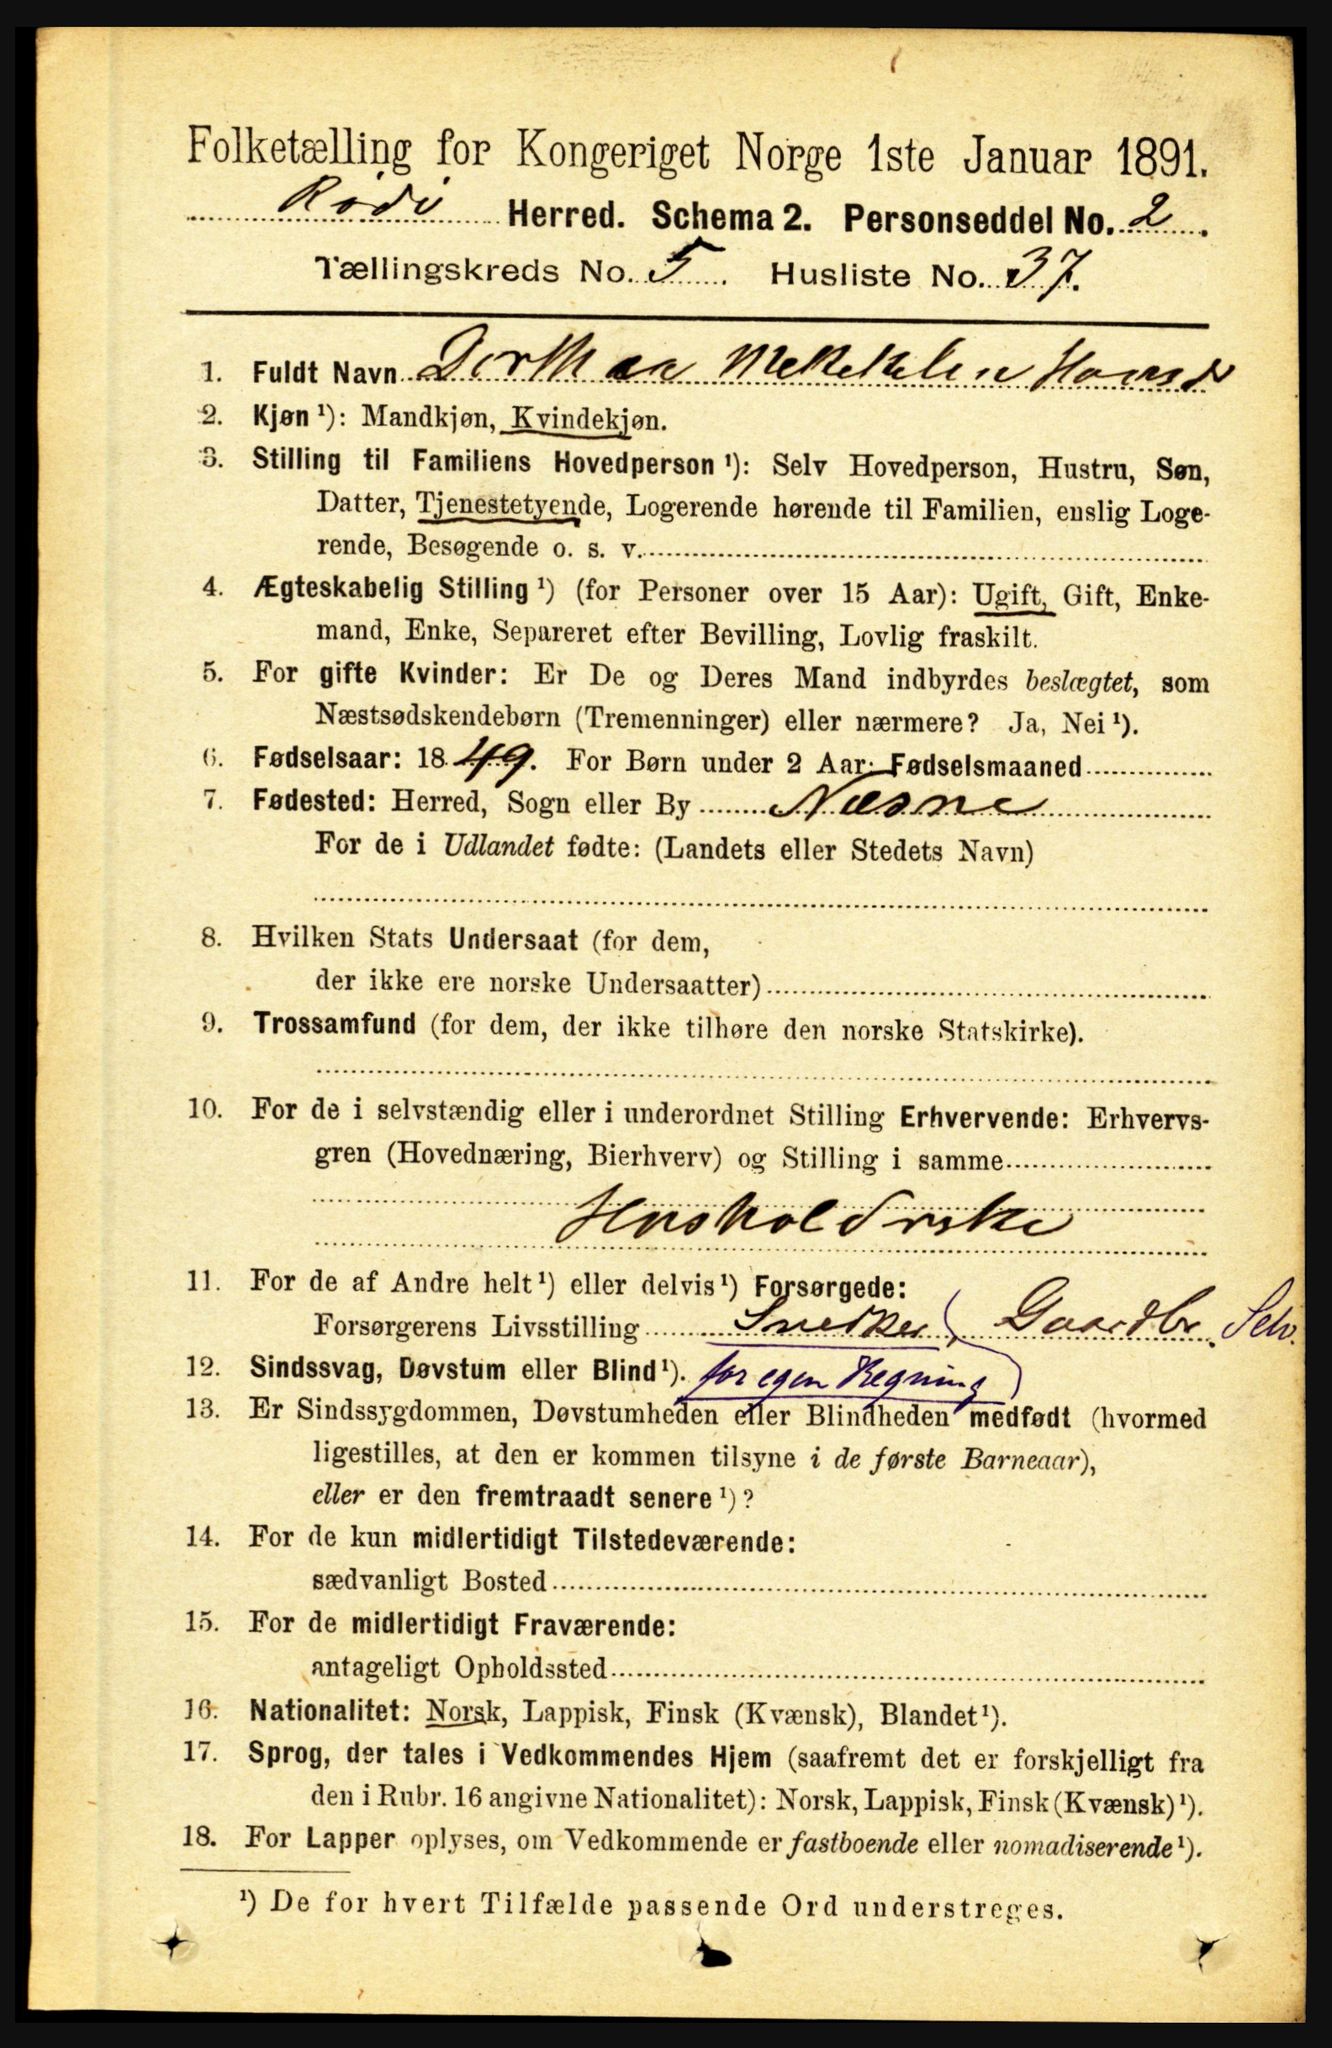 Folketælling for Kongeriget Norge 1ste Januar 1891.
Rödö Herred. Schema 2. Personseddel No. 2.
Tællingskreds No. 5. Husliste No. 37.
1. Fuldt Navn Dorthea
2. Kjøn ¹): Mandkjøn, Kvindekjøn.
3. Stilling til Familiens Hovedperson ¹): Selv Hovedperson, Hustru, Søn,
Datter, Tjenestetyende, Logerende hørende til Familien, enslig Loge-
rende, Besøgende o. s. v.
4. Ægteskabelig Stilling ¹) (for Personer over 15 Aar): Ugift, Gift, Enke-
mand, Enke, Separeret efter Bevilling, Lovlig fraskilt.
5. For gifte Kvinder: Er De og Deres Mand indbyrdes beslægtet, som
Næstsødskendebørn (Tremenninger) eller nærmere? Ja, Nei ¹).
6. Fødselsaar: 1849. For Børn under 2 Aar: Fødselsmaaned
7. Fødested: Herred, Sogn eller By Næsne
For de i Udlandet fødte: (Landets eller Stedets Navn)
8. Hvilken Stats Undersaat (for dem,
der ikke ere norske Undersaatter)
9. Trossamfund (for dem, der ikke tilhøre den norske Statskirke).
10. For de i selvstændig eller i underordnet Stilling Erhvervende: Erhvervs-
gren (Hovednæring, Bierhverv) og Stilling i samme
Husholderske
11. For de af Andre helt ¹) eller delvis ¹) Forsørgede:
Forsørgerens Livsstilling Snedker Gaardbr. Selv.
12. Sindssvag, Døvstum eller Blind ¹). for egen Regning
13. Er Sindssygdommen, Døvstumheden eller Blindheden medfødt (hvormed
ligestilles, at den er kommen tilsyne i de første Barneaar),
eller er den fremtraadt senere ¹)?
14. For de kun midlertidigt Tilstedeværende:
sædvanligt Bosted
15. For de midlertidigt Fraværende:
antageligt Opholdssted
16. Nationalitet: Norsk, Lappisk, Finsk (Kvænsk), Blandet ¹).
17. Sprog, der tales i Vedkommendes Hjem (saafremt det er forskjelligt fra
den i Rubr. 16 angivne Nationalitet): Norsk, Lappisk, Finsk (Kvænsk) ¹).
18. For Lapper oplyses, om Vedkommende er fastboende eller nomadiserende ¹).
¹) De for hvert Tilfælde passende Ord understreges.